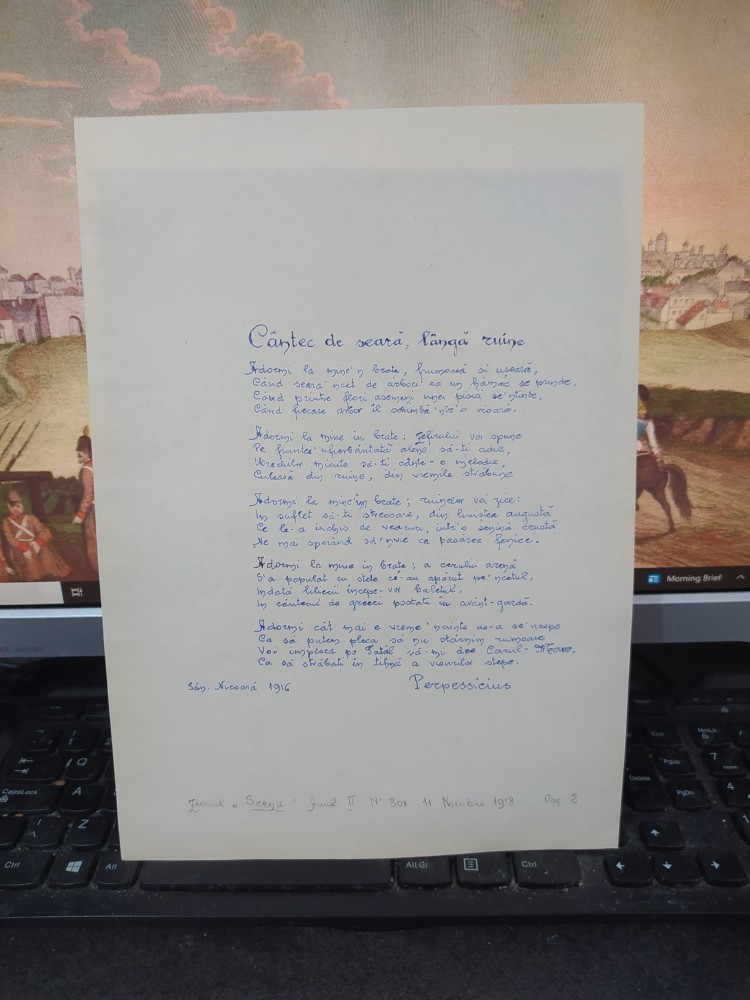 Cântec de seară, lângă ruine
Adormi la mine'n brațe, frumoasă și ușoară,
Când seara'ncet de arbori ca un hamac se prinde,
Când printre flori asemeni unei pisici se'ntinde,
Când fiecare arbor îl schimbă'ntr'o vioară.
Adormi la mine în brațe; Zefirului voi spune
Pe fruntea'nfierbântată alene să-ți adie,
Urechilor micuțe să-ți cânte-o melodie,
Culeasă din ruine, din vremile străbune
Adormi la mine'în brațe; ruinelor voi zice:
În suflet să-ți strecoare, din liniștea augustă
Ce le-a închis de veacuri, într'o senină crustă
Ne mai sperând să'nvie ca pasărea fenice.
Adormi la mine în brațe; a cerului arenă
S'a populat cu stele ce-au apărut pe'ncetul,
Îndată liliecii începe-vor baletul,
În cântecul de greeri postați în avant-gardă.
Adormi cât mai e vreme'nainte de-a se'ncepe
Ca să putem pleca să nu stârnim rumoare
Voi implora pe Tatăl să-mi dea Carul-Mare,
Ca să străbați în tihnă a visurilor stepe.
Sân. Nicoară 1916 Perpessicius
Ziarul „Scena" Anul II Nr 801 11 Noembre 1918 Pag 2
Morning Brief
CapsLock
Q
A
Z
Ctrl
Alt
Alt Gr
Ctrl
End
Delete
PgDn